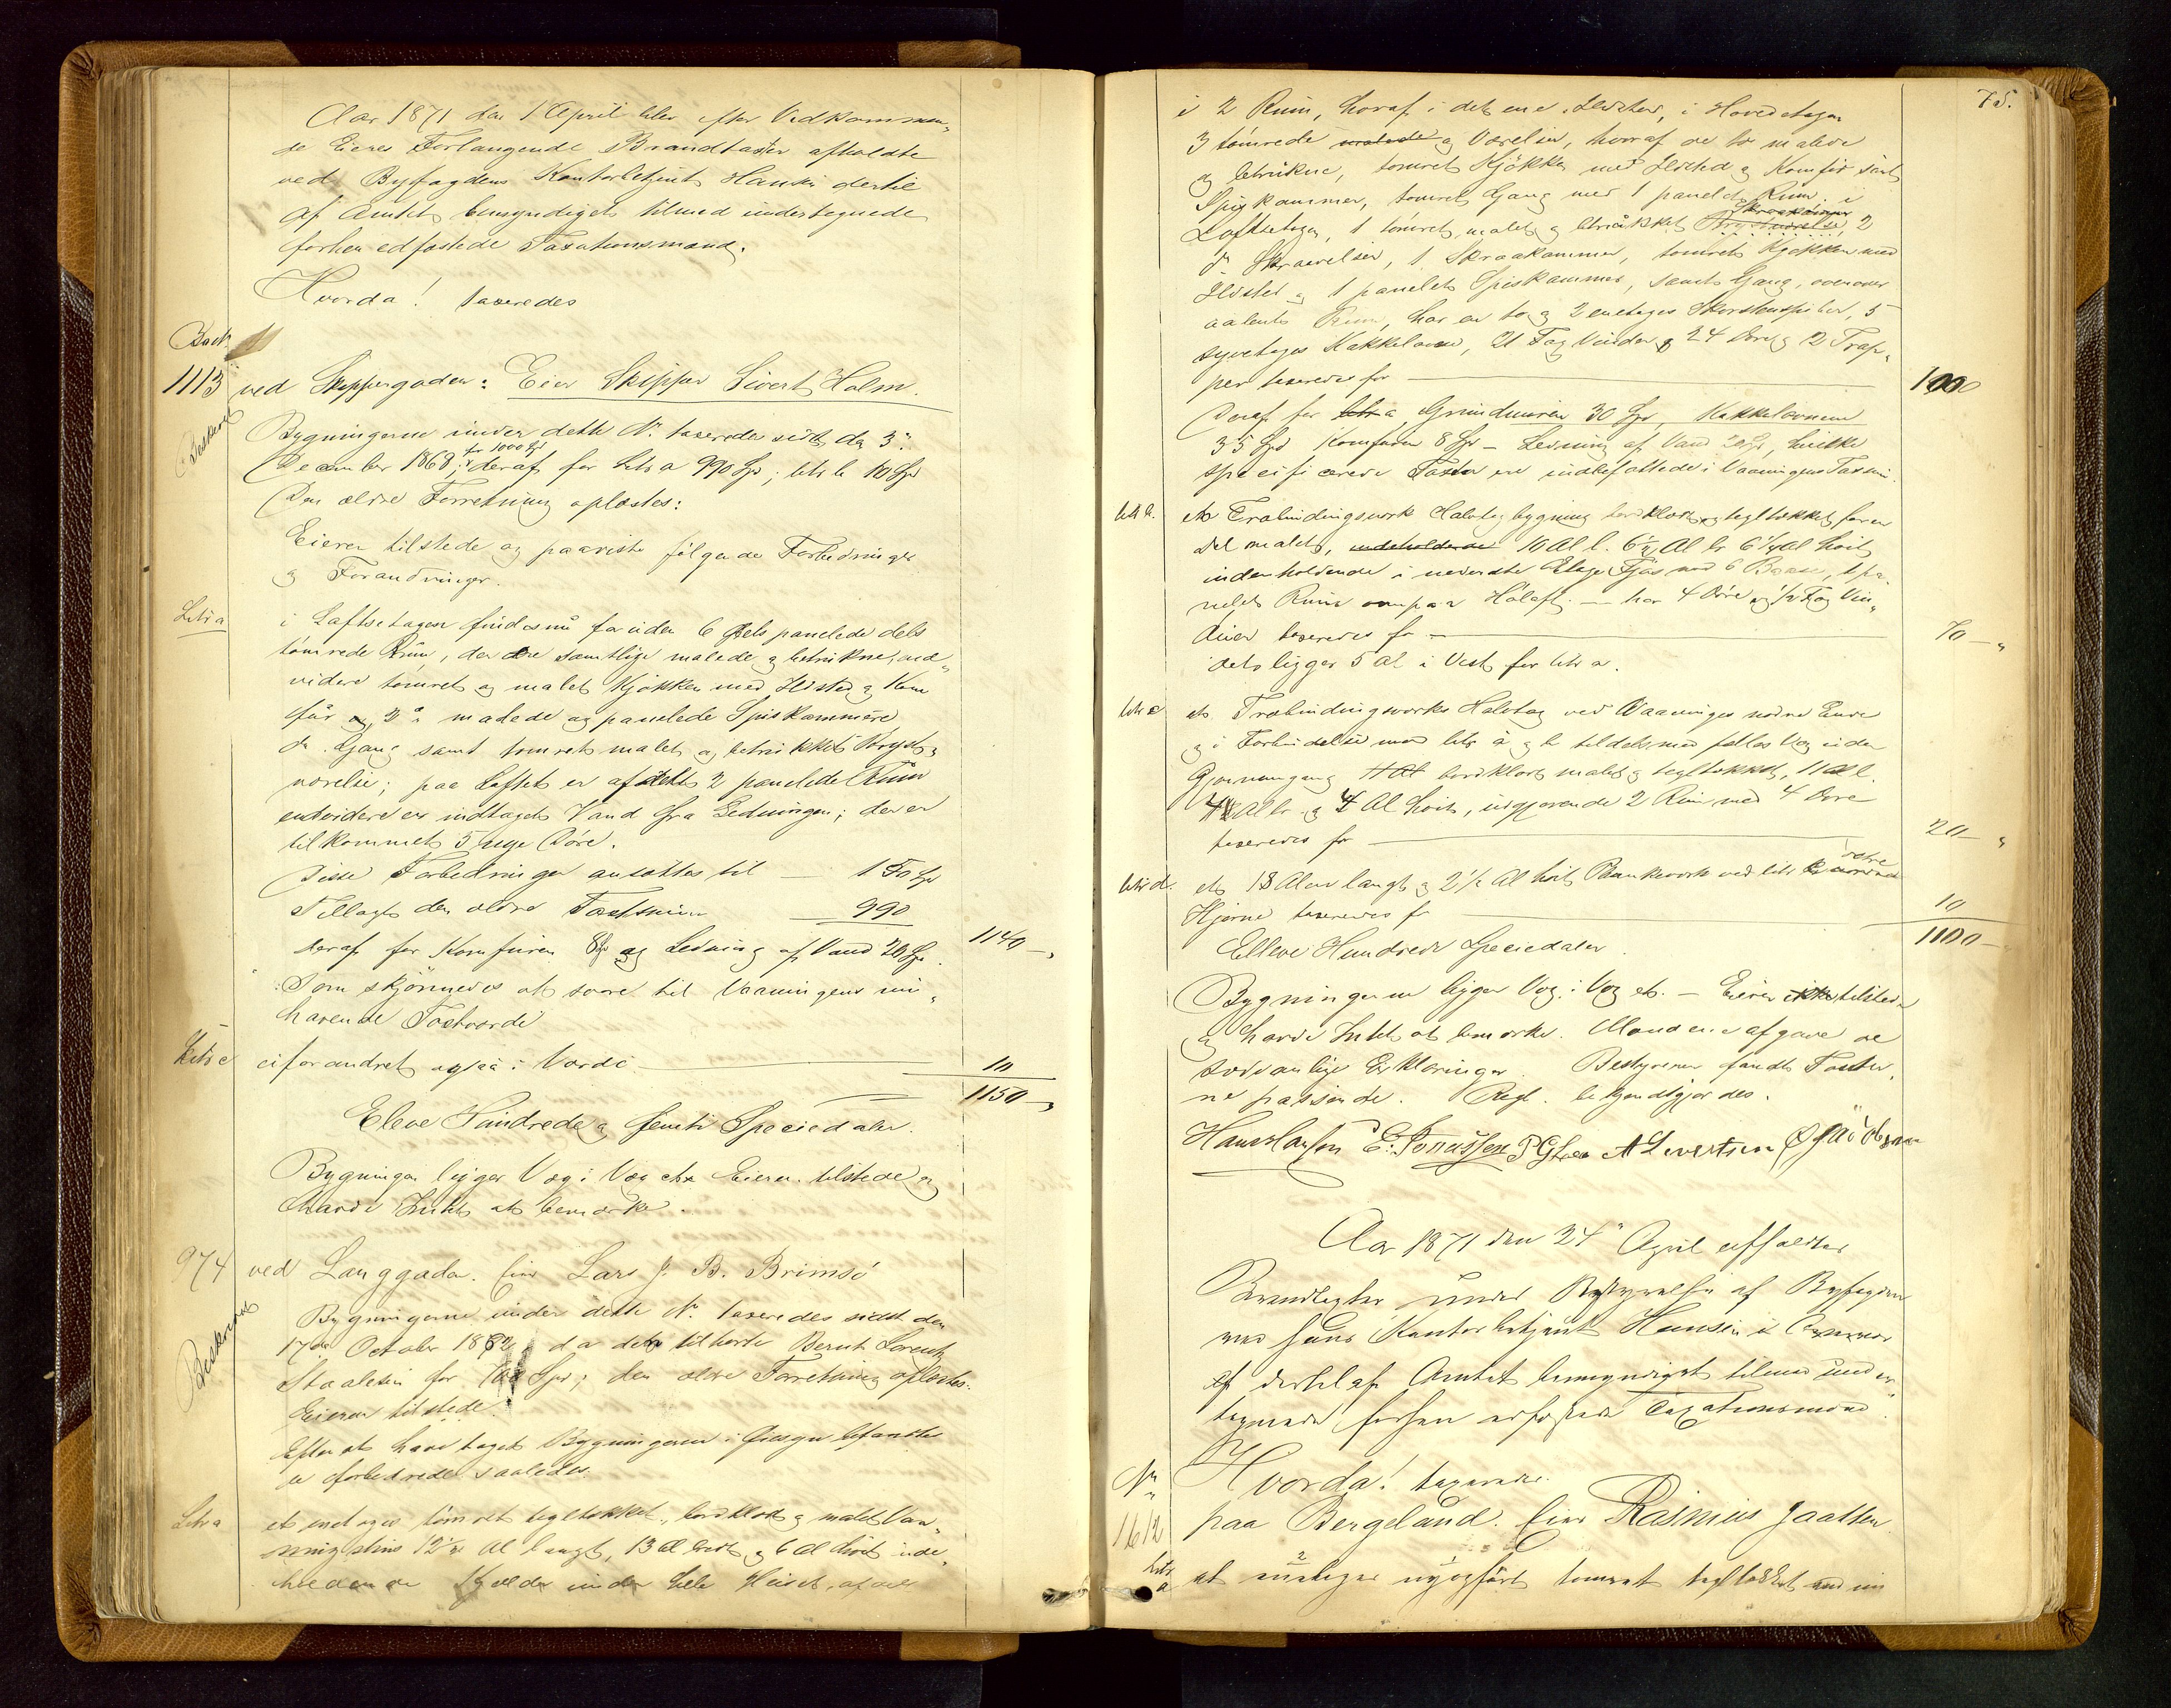 Aar 1871 den 1 April blev efter Vedkommen-
de Eieres Forlangende Brandtaxter afholdte
ved Byfogdens Kontorbetjent Hansen dertil
af Amtet bemyndiget tilmed undertegnede
forhen edfæstede Taxationsmænd.
Hvorda! taxeredes
1113 ved Skippergaden: Eier Skipper Sivert Holm.
Beskreve
Bygningerne under dette No. taxeredes sidst den 3.
for 1000 Spd
December 1868; deraf for Litr a 990 Spd; litr b 10 Spd
Den ældre Forretning oplæstes:
Eieren tilstede og paaviste følgende Forbedringer
og Forandringer.
Litr a
i Loftsetagen findes nu foruden 6 dels panelede dels
tømrede Rum, der ere samtlige malede og betrukne, end-
videre tømret og malet Kjøkken med Ildsted og Kom
fur og 2 malede og panelede Spiskammere
do. Gang samt tømret malet og betrukket Bryst-
værelse; paa Loftet er afdelt 2 panelede Rum
endvidere er indtaget Vand fra Ledningen; der er
tilkommet 5 nye Døre.
Disse Forbedringer ansættes til — 150 Spd
Tillagt den ældre Taxtsum — 990
1140 -
deraf for Komfuren 8 Spd og Ledning af Vand 20 Spd
Som skjønnedes at svare til Vaaningens inde-
havende Taxtværdi
Litr c eiforandret ogsaa i Værdi — 10
1150 -
Eleve Hundrede og femti Speciedaler.
Bygningen ligger Væg i Væg etc Eieren tilstede og
havde Intet at bemærke.
974 ved Langgaden. Eier Lars J. B. Brimsø
Beskreven
Bygningerne under dette No. taxeredes sidst den
17de October 1862 da det tilhørte Bernt Lorentz
Staalesen for Spd; den ældre Forretning oplæstes.
Eieren tilstede.
Efterat have taget Bygningerne i Øiesyn befandtes
de forbedrede saaledes.
Litr a
et enetages tømret tegltækket, bordklædt og malet Vaa-
ningshus 12½ Al langt, 13 Al bredt og 6 Al høit inde-
holdende Kjelder under hele Huset, afdelt
75.
i 2 Rum, hvoraf i det ene Ildsted, i Hovedetagen
3 tømrede malede og Værelser, hvoraf de to malede
og betrukne, tømret Kjøkken med Ildsted og Komfur samt
Spiskammer, tømret Gang med 1 panelet Rum; i
Skraakammer
Loftsetagen, 1 tømret, malet og betrækket Brystværelse, 2
do Skraaværelser, 1 Skraakammer, tømret Kjøkken med
Ildsted og 1 panelet Spiskammer, samt Gang, ovenover
aabent Rum, har en to og 2 enetages Skorstenspiber, 5
syvetages Kakkelovne, 21 Fag Vinduer og 24 Døre og 2 Trap-
per taxeredes for — 1000
Deraf for litr a Grundmuren 30 Spd, Kakkelovnene
35 Spd Komfuren 8 Spd — Ledning af Vand 20 Spd, hvilke
specificerede Taxter ere indbefattede i Vaaningens Taxtsum.
litr b.
et Træbindingsværk Halvtag bygning bordklædt og tegltækket for en
del malet, indeholdende 10 Al l. 6½ Al br 6¼ Al høit,
indenholdende i nederste Etage Fjøs med 6 Baase, 1 pa-
nelet Rum ovenpaa Høloft — har 4 Døre og ½ Fag Vin-
duer taxeredes for — 70 -
det ligger 5 Al i Vest for litr a.
litr c
et Træbindingsværks Halvtag ved Vaaningens nordre Ende
og i Forbindelse med litr a og b tildels med fælles Væg uden
Gjennemgang bordklædt malet og tegltækket, 11 Al l.
4 Al br. og 4 Al høit, udgjørende 2 Rum med 4 Døre
taxeredes for — 20 -
litr d.
et 18 Alen langt og 2½ Al høit Plankeværk ved litr b nordre
Hjørne taxeredes for — 10
1100 -
Elleve Hundrede Speciedaler.
Bygningerne ligger Væg i Væg et. — Eieren ikke tilstede
og havde Intet at bemærke. Mændene afgave de
sædvanlige Erklæringer. Bestyreren fandt Taxter-
ne passende. Regl. bekjendtgjordes.
Hans Larsen E. Jonassen P Gjøen A Sivertsen Ø Jacobsen
Aar 1871 den 24 April afholdtes
Brandtaxter under Bestyrelse af Byfogden
ved hans Kontorbetjent Hansen
af dertil af Amtet bemyndiget tilmed under-
tegnede forhen edfæstede Taxationsmænd.
Hvorda! taxeredes.
No 1612
paa Bergeland. Eier Rasmus Jaatten
litr a
et enetages nyopført tømret tegltækket